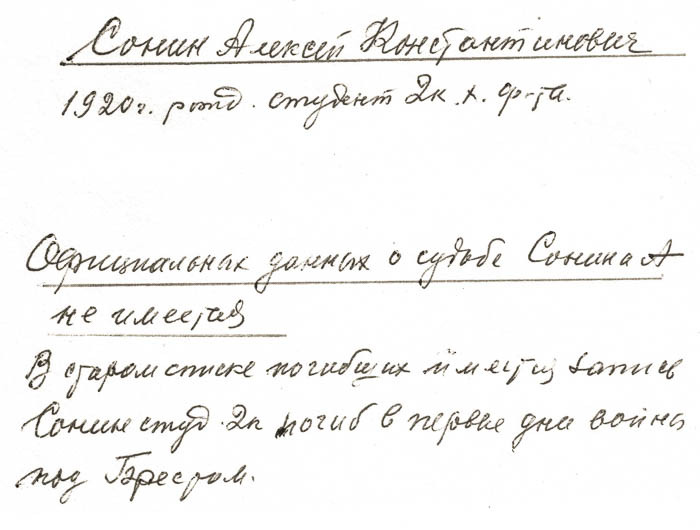 Сонин Алексей Константинович
1920г. рожд. студент 2к. х. ф-та.
Официальных данных о судьбе Сонина А
не имеется
В старом списке погибших имеется запись
Сонин студ. 2к погиб в первые дни войны
под Брестом.